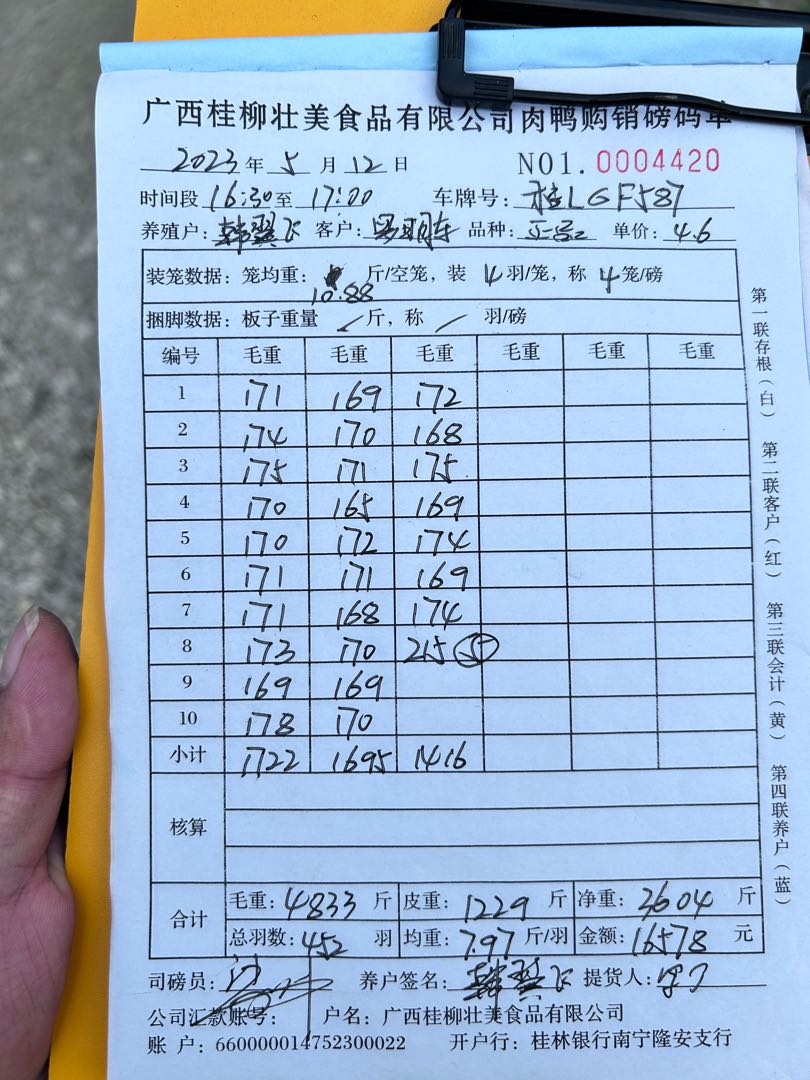 广西桂柳壮美食品有限公司肉鸭购销磅码单
2023年5月12日 NO1.0004420
时间段16:30至17:00 车牌号:桂LGF587
养殖户:韩翼飞 客户: 品种:正品 单价:4.6
装笼数据:笼均重:10.88斤/空笼,装4羽/笼,称4笼/磅
捆脚数据:板子重量/斤,称/羽/磅
编号 毛重 毛重 毛重 毛重 毛重 毛重
1 171 169 172
2 174 170 168
3 175 171 175
4 170 165 169
5 170 172 174
6 171 171 169
7 171 168 174
8 173 170 215 5
9 169 169
10 178 170
小计 1722 1695 1416
核算
合计 毛重:4833斤 皮重:1229斤 净重:3604斤
总羽数:452羽 均重:7.97斤/羽 金额:16578元
司磅员: 养户签名:韩翼飞 提货人:
公司汇款账号: 户名:广西桂柳壮美食品有限公司
账 户:660000014752300022 开户行:桂林银行南宁隆安支行
第一联存根(白) 第二联客户(红) 第三联会计(黄) 第四联养户(蓝)